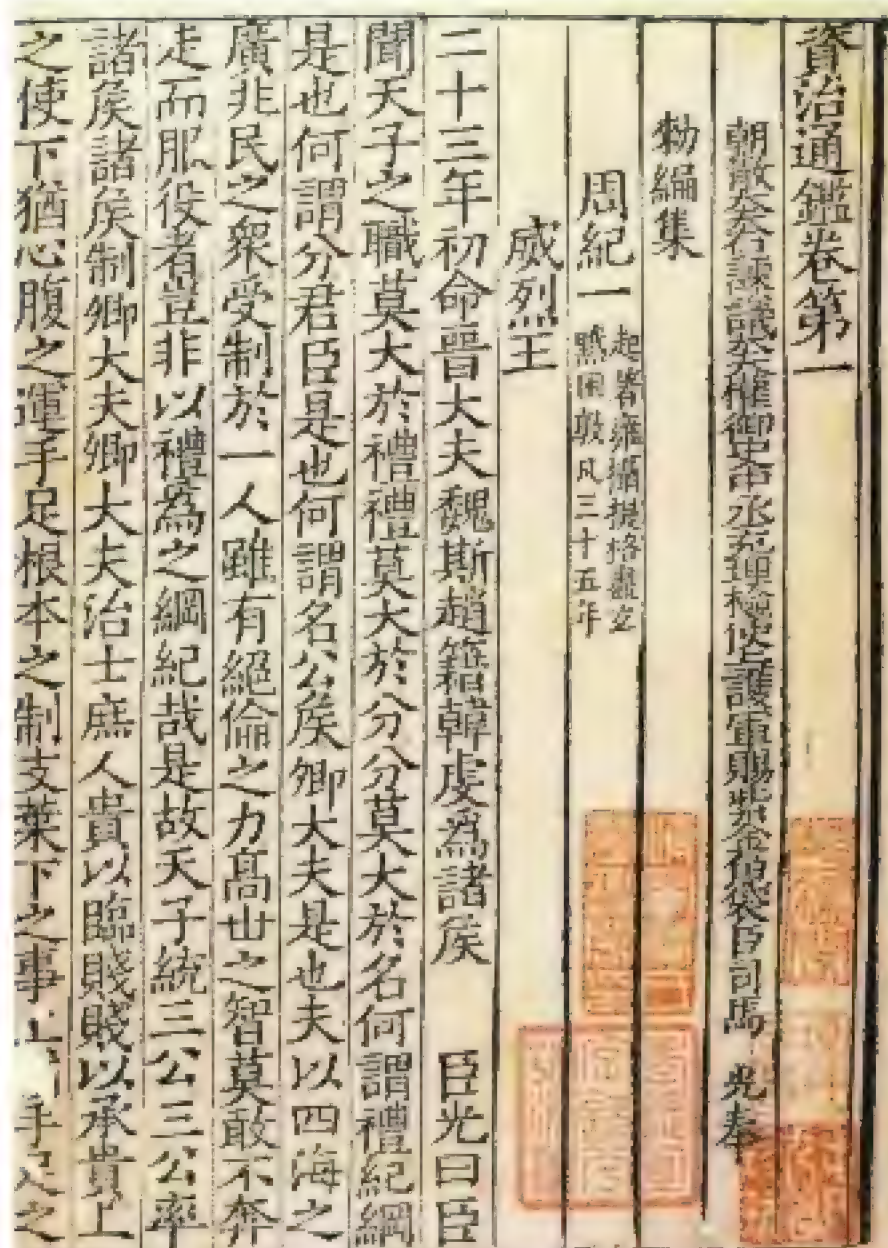 資治通鑑卷第一
朝散大夫右諫議大夫權御史中丞充理檢使上護軍賜紫金魚袋臣司馬 光奉
勑編集
周紀一 起著雍攝提格盡玄
黓困敦凡三十五年
威烈王
二十三年初命晉大夫魏斯趙籍韓虔爲諸矦 臣光曰臣
聞天子之職莫大於禮禮莫大於分分莫大於名何謂禮紀綱
是也何謂分君臣是也何謂名公矦卿大夫是也夫以四海之
廣非民之衆受制於一人雖有絕倫之力高世之智莫敢不奔
走而服役者豈非以禮爲之綱紀哉是故天子統三公三公率
諸矦諸矦制卿大夫卿大夫治士庶人貴以臨賤賤以承貴上
之使下猶心腹之運手足根本之制支葉下之事上 手足之